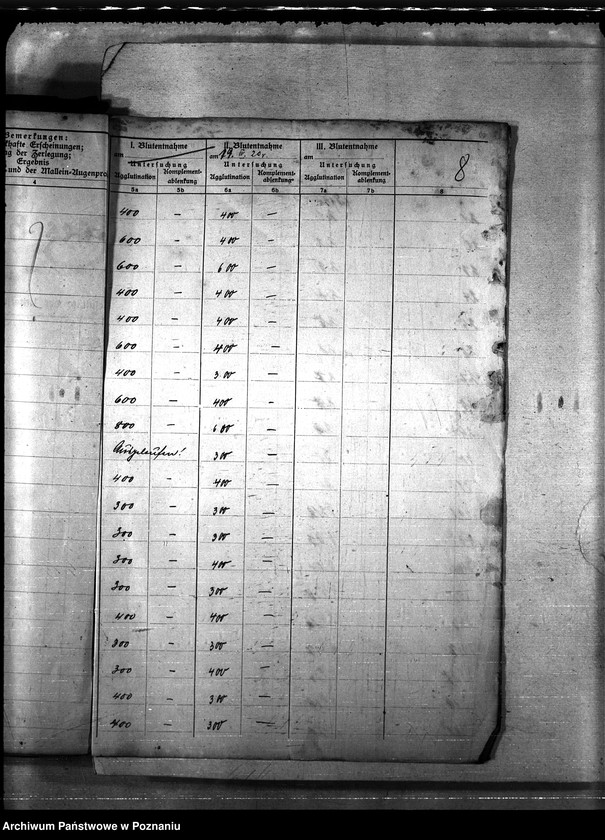 Bemerkungen:
hafte Erscheinungen;
g der Zerlegung;
Ergebnis
und der Mallein-Augenpro
4
I. Blutentnahme II. Blutentnahme III. Blutentnahme
am am 19. am
Untersuchung Untersuchung Untersuchung
Agglutination Komplement-ablenkung Agglutination Komplement-ablenkung Agglutination Komplement-ablenkung
5a 5b 6a 6b 7a 7b 8
8
400 — 400 —
600 — 400 —
600 — 600 —
400 — 400 —
400 — 400 —
600 — 400 —
400 — 300 —
600 — 400 —
800 — 600 —
Ausgelaufen! 300 —
400 — 400 —
300 — 300 —
300 — 300 —
300 — 400 —
300 — 300 —
400 — 400 —
300 — 300 —
300 — 400 —
400 — 300 —
400 — 300 —
Archiwum Państwowe w Poznaniu